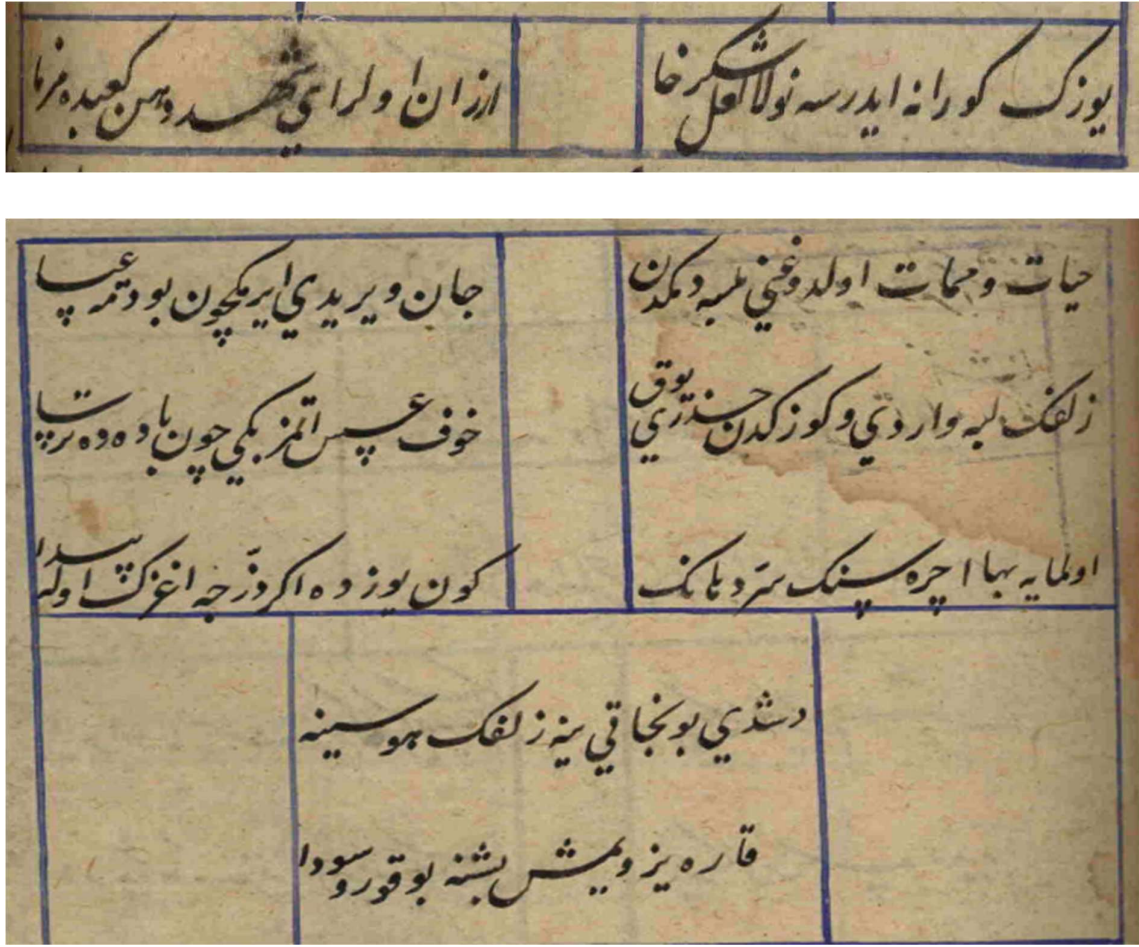 یوزک کورانه ایدرسه نولا لعل شکرخا ارزان اولر ای شهد دهن کعبه ده خرما
حیات و ممات اولدوغنی بلسه دمکدن جان ویریدی ایرمکچون بو دمه عیسا
زلفک لبه واردی و کوزکدن حذری یوق خوف عسس اتمز بکی چون باده ده ترسا
اولمایه بها اچره سنک سر دهانک کون یوزده اکر ذرجه اغزک اوله پیدا
دشدی بو نجاتی ینه زلفک هوسینه
قاره یزویمش بشنه بو قورو سودا